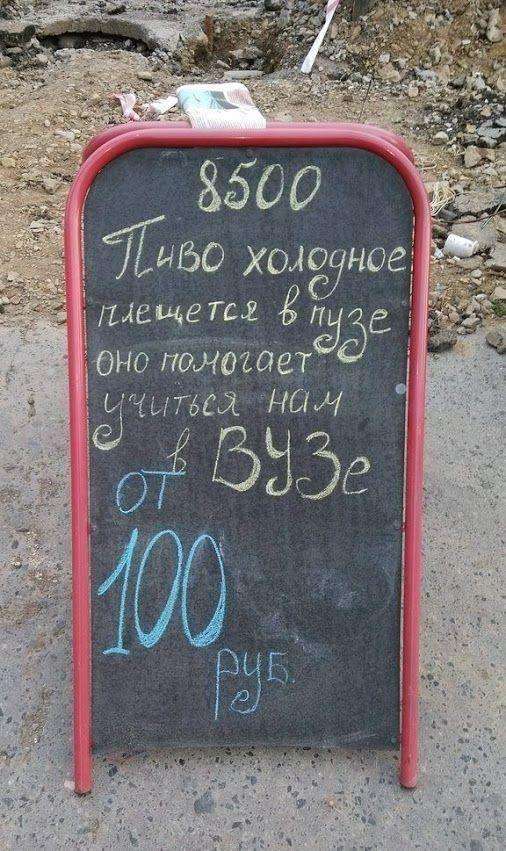 8500
Пиво холодное
плещется в пузе
оно помогает
учиться нам
в ВУЗе
от
100
руб.